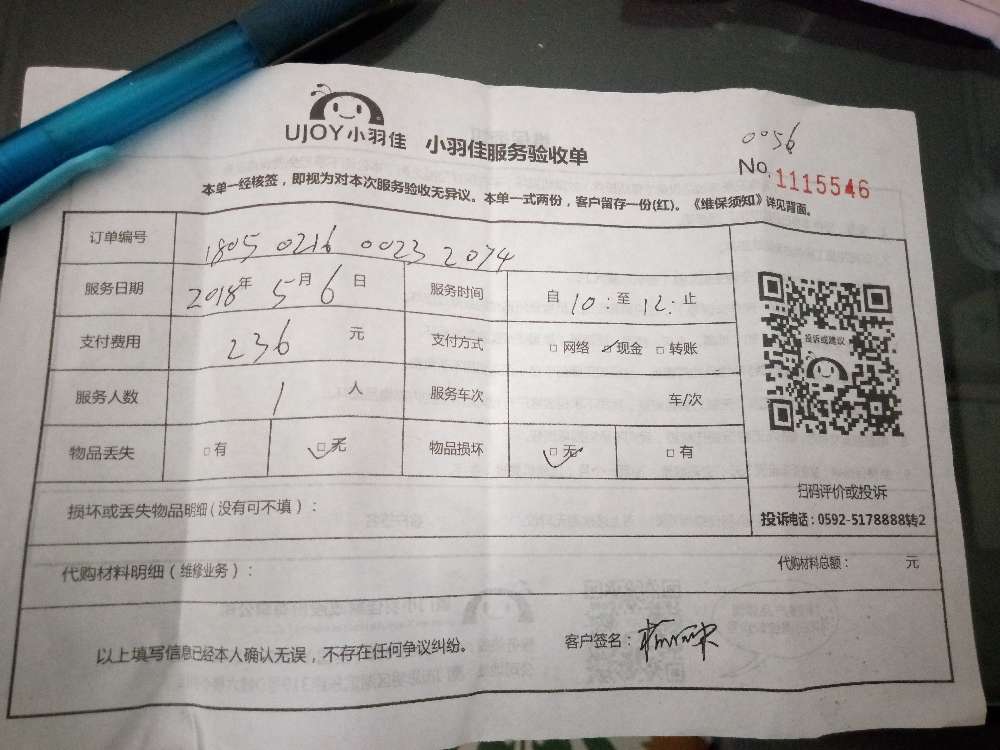 UJOY小羽佳 小羽佳服务验收单
0056
No. 1115546
本单一经核签，即视为对本次服务验收无异议。本单一式两份，客户留存一份(红)。《维保须知》详见背面。
订单编号 1805 0216 0023 2074
服务日期 2018年 5月 6日 服务时间 自 10: 至 12: 止
支付费用 236 元 支付方式 □网络 ☑现金 □转账
服务人数 1 人 服务车次 车/次
物品丢失 □有 ☑无 物品损坏 ☑无 □有
投诉或建议
扫码评价或投诉
投诉电话：0592-5178888转2
损坏或丢失物品明细(没有可不填)：
代购材料明细(维修业务)： 代购材料总额： 元
以上填写信息已经本人确认无误，不存在任何争议纠纷。 客户签名：